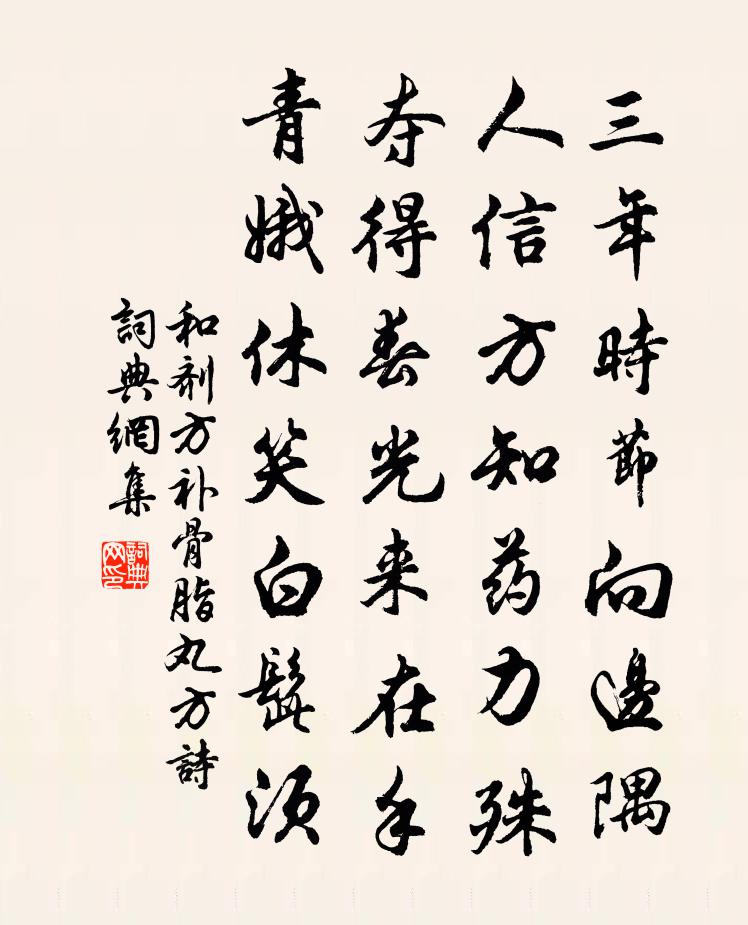 三年時節向邊隅
人信方知药力殊
夺得春光来在手
青娥休笑白髭须
和剂方补骨脂丸方詩
詞典網集
詞典网印